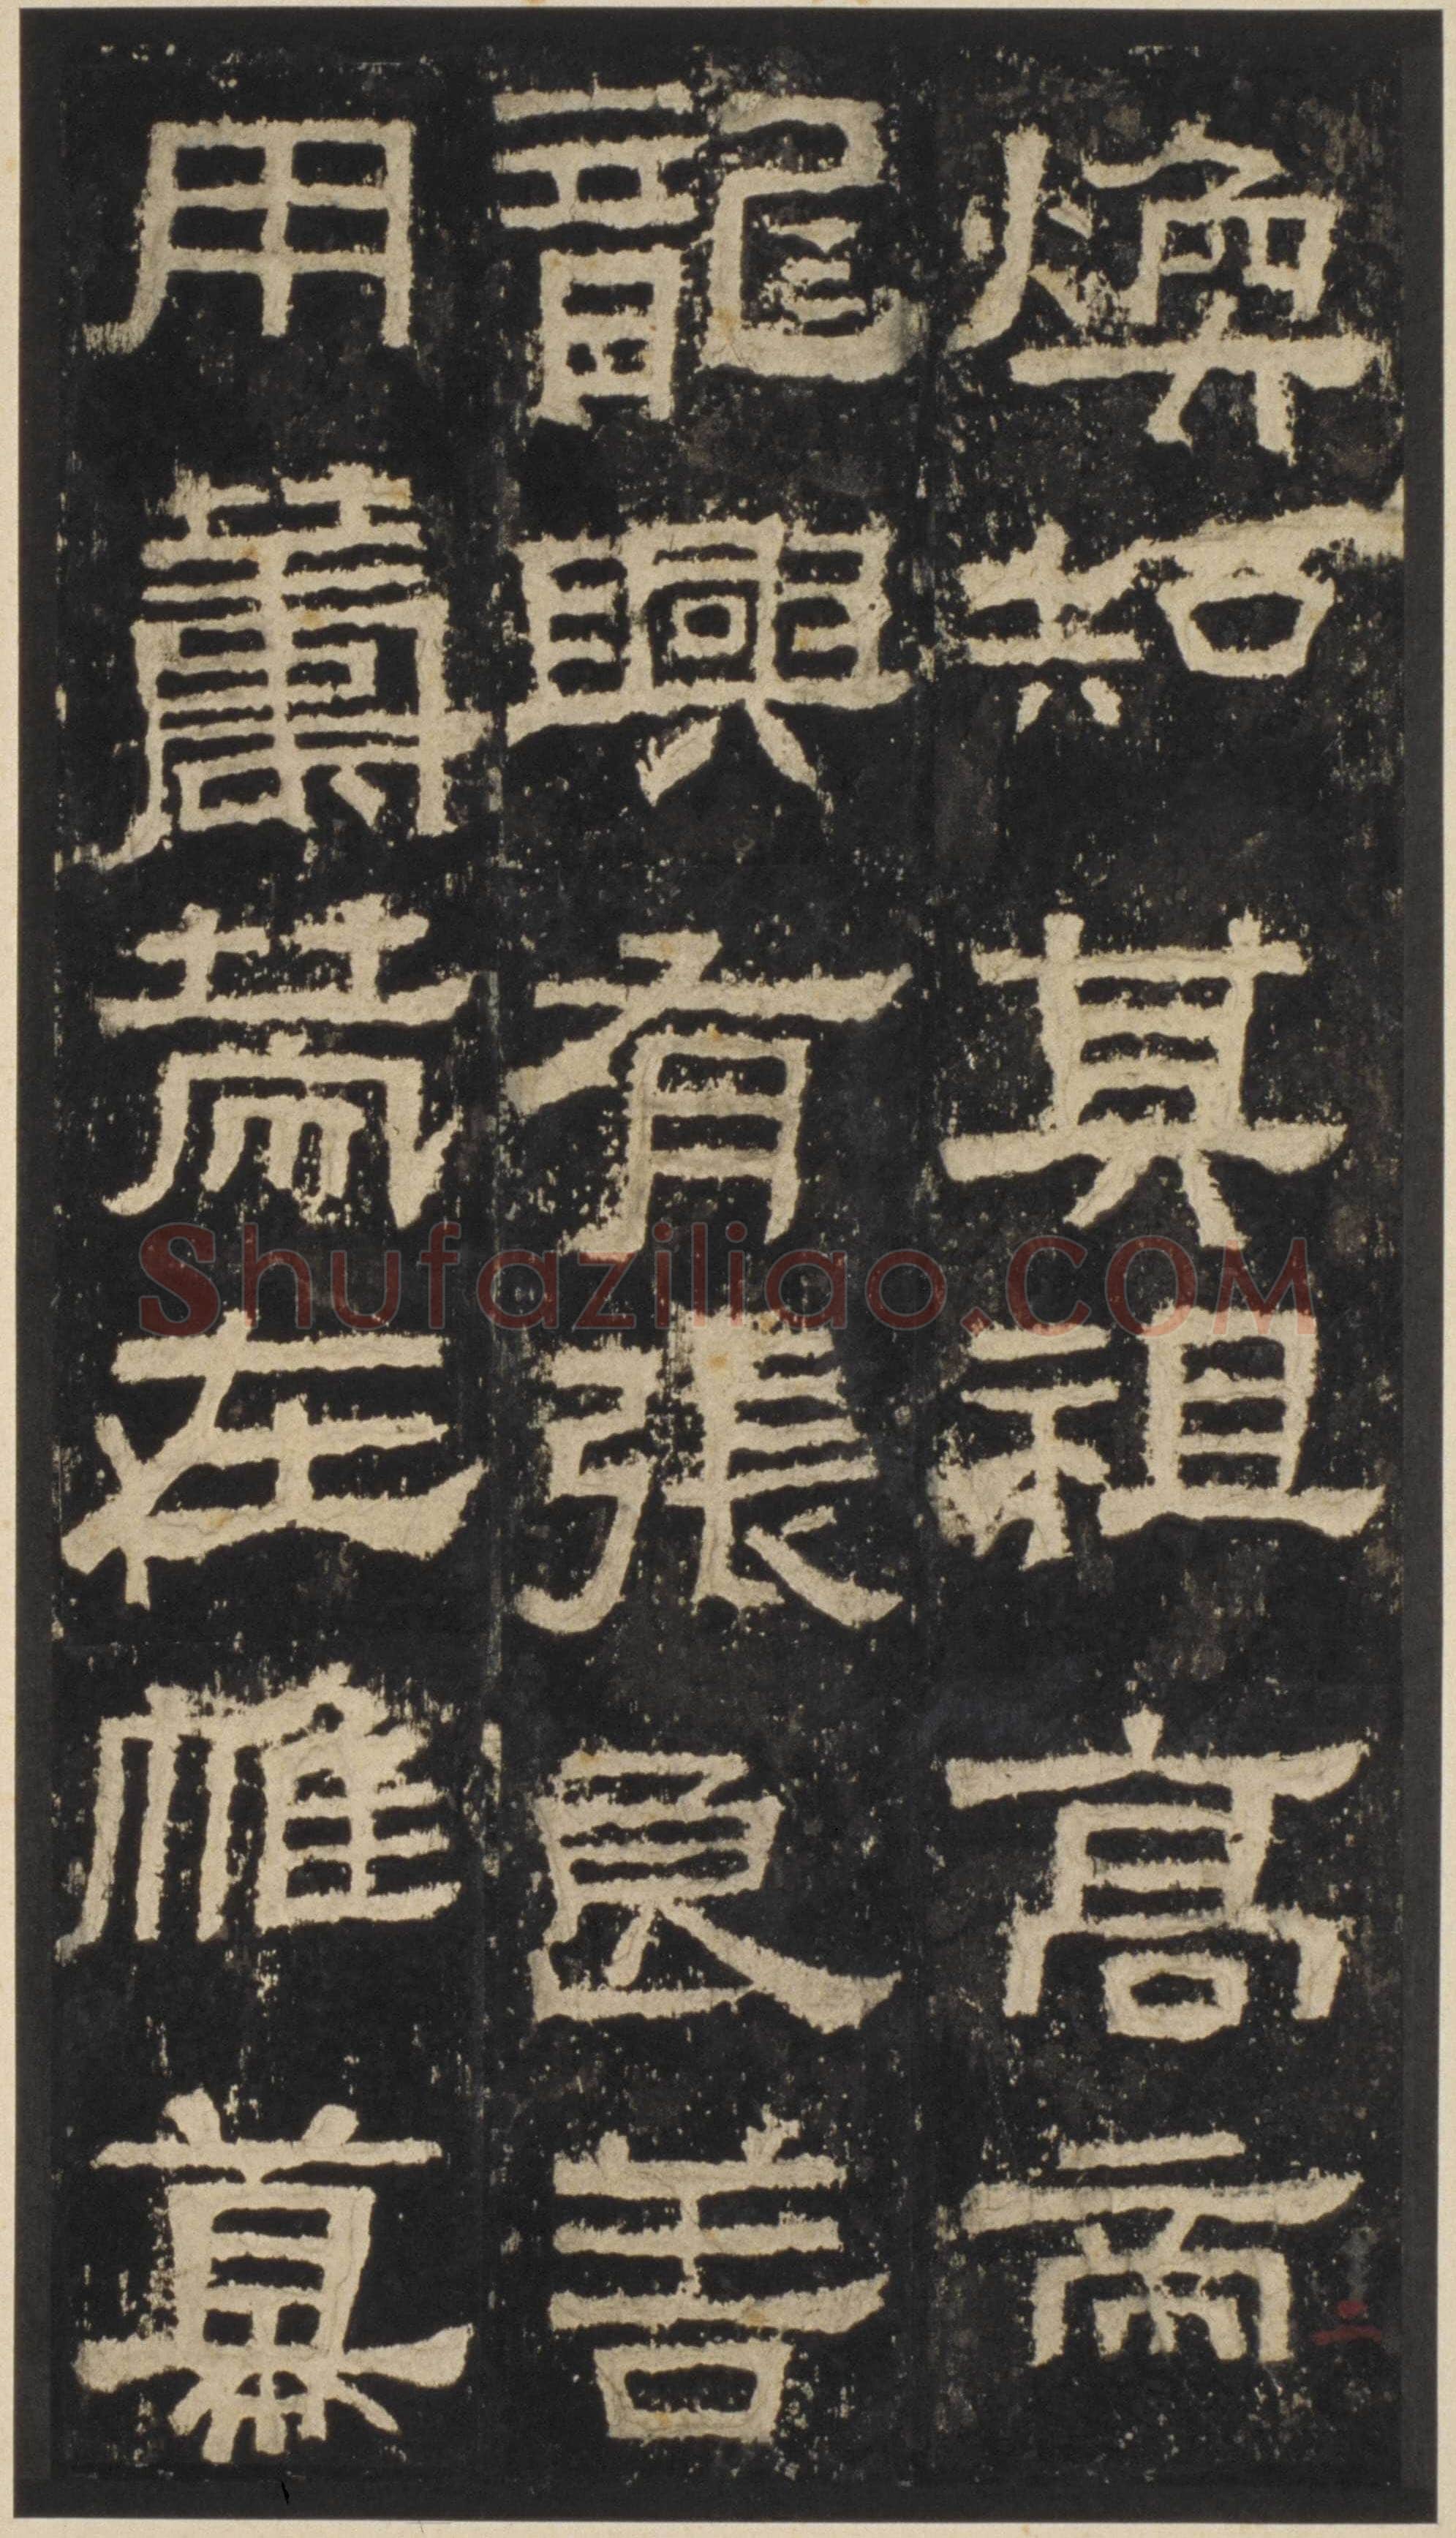 煥知其祖高帝
龍興有張良善
用籌策在帷幕
Shufaziliao.COM